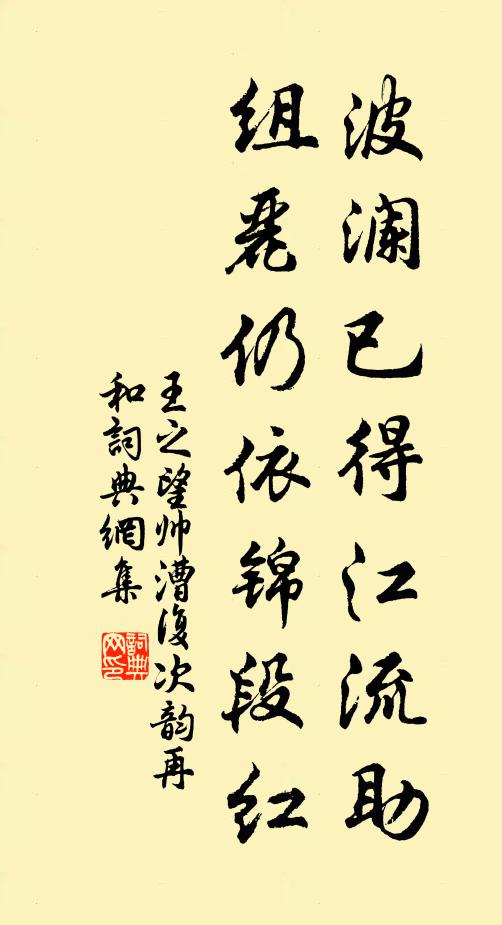 波澜已得江流助
组丽仍依锦段红
王之望帅漕复次韵再
和词典網集
詞典网印